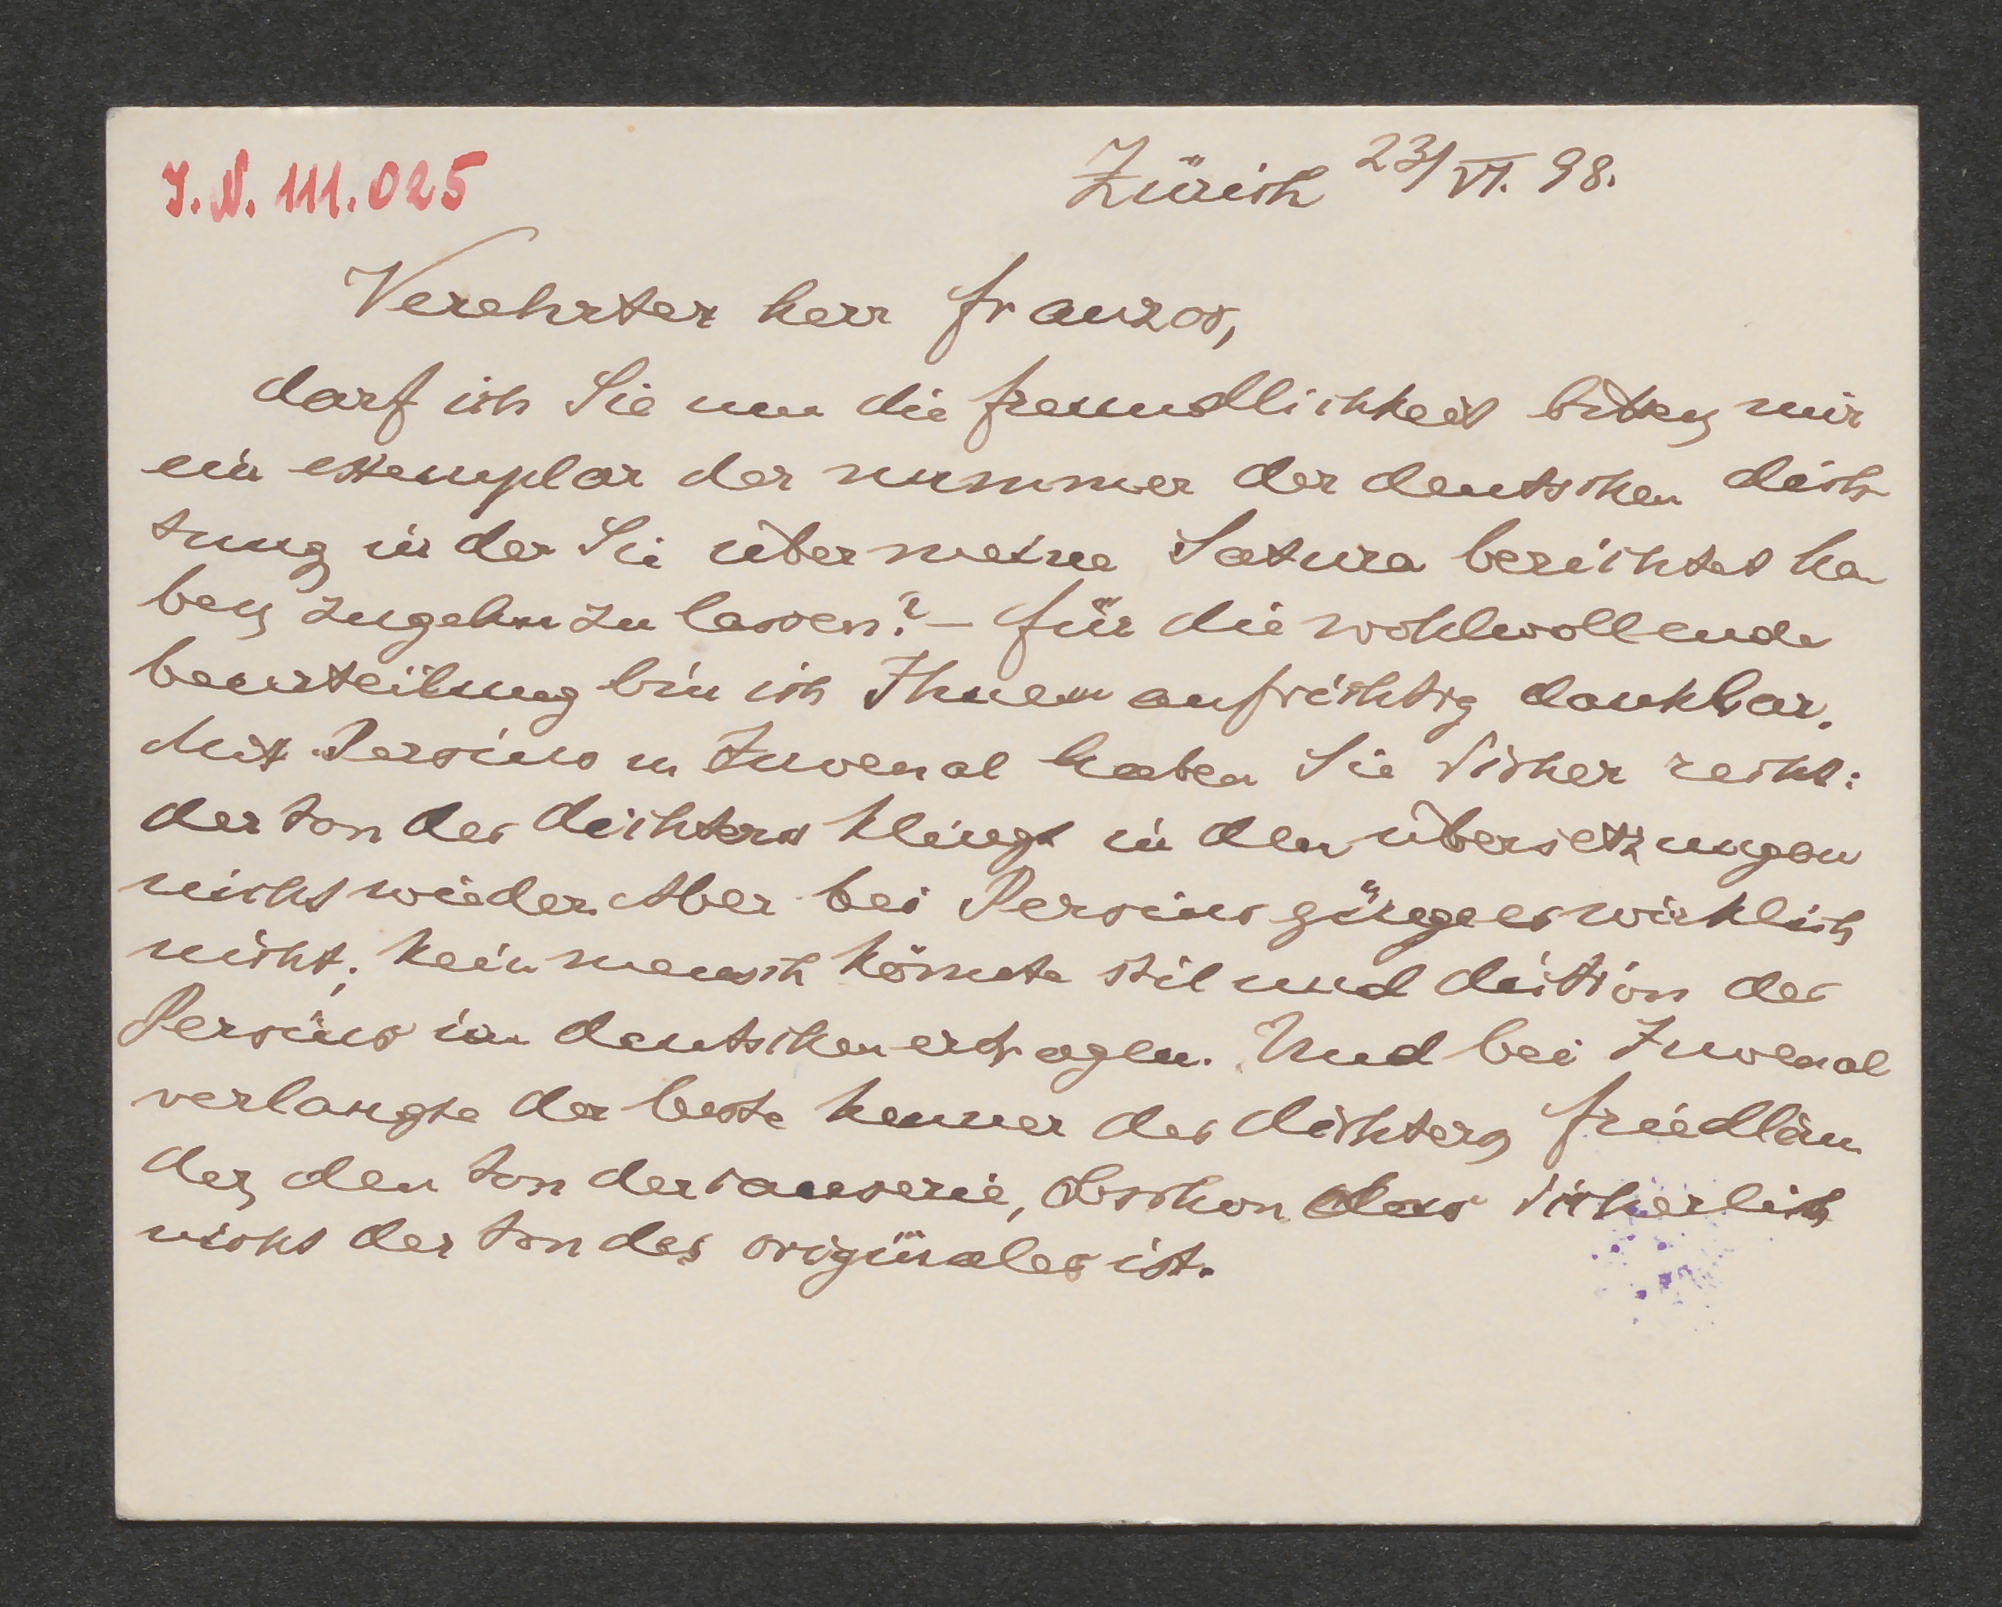 J. N. 111.025
Zürich 23/VI. 98.
Verehrter herr franzos,
darf ich Sie um die freundlichkeit bitten mir
ein exemplar der nummer der deutschen dich
tung in der Sie über meine Satura berichtet ha
ben zugehn zu lassen? – für die wohlwollende
beurteilung bin ich Ihnen aufrichtig dankbar.
Mit Persius u Juvenal haben Sie sicher recht:
der ton des dichters klingt in den übersetzungen
nicht wieder. Aber bei Persius ginge es wirklich
nicht; kein mensch könnte stil und diction des
Persius im deutschen ertragen. Und bei Juvenal
verlangte der beste kenner des dichters, friedlän
der, den ton der causerie, obschon das sicherlich
nicht der ton des originales ist.